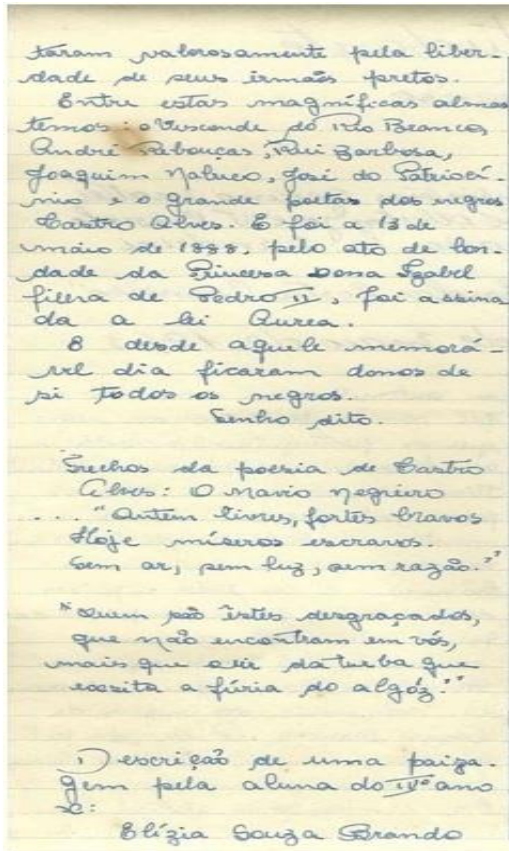 taram valorosamente pela liber-
dade de seus irmãos pretos.
Entre estas magníficas almas
temos: o Visconde do Rio Branco,
André Rebouças, Rui Barbosa,
Joaquim Nabuco, José do Patrocí-
nio e o grande poetas dos negros
Castro Alves. E foi a 13 de
maio de 1888, pelo ato de bon-
dade da Princesa Dona Izabel
filha de Pedro II, foi assina
da a lei Aurea.
E desde aquele memorá-
vel dia ficaram donos de
si todos os negros.
Tenho dito.
Trechos da poesia de Castro
Alves: O navio negreiro
.... "Ontem livres, fortes bravos
Hoje míseros escravos.
Sem ar, sem luz, sem razão."
"Quem são êstes desgraçados,
que não encontram em vós,
mais que o rir da turba que
excita a fúria do algóz."
Descrição de uma paiza.
gem pela aluna do IVº ano
Elízia Souza Brando